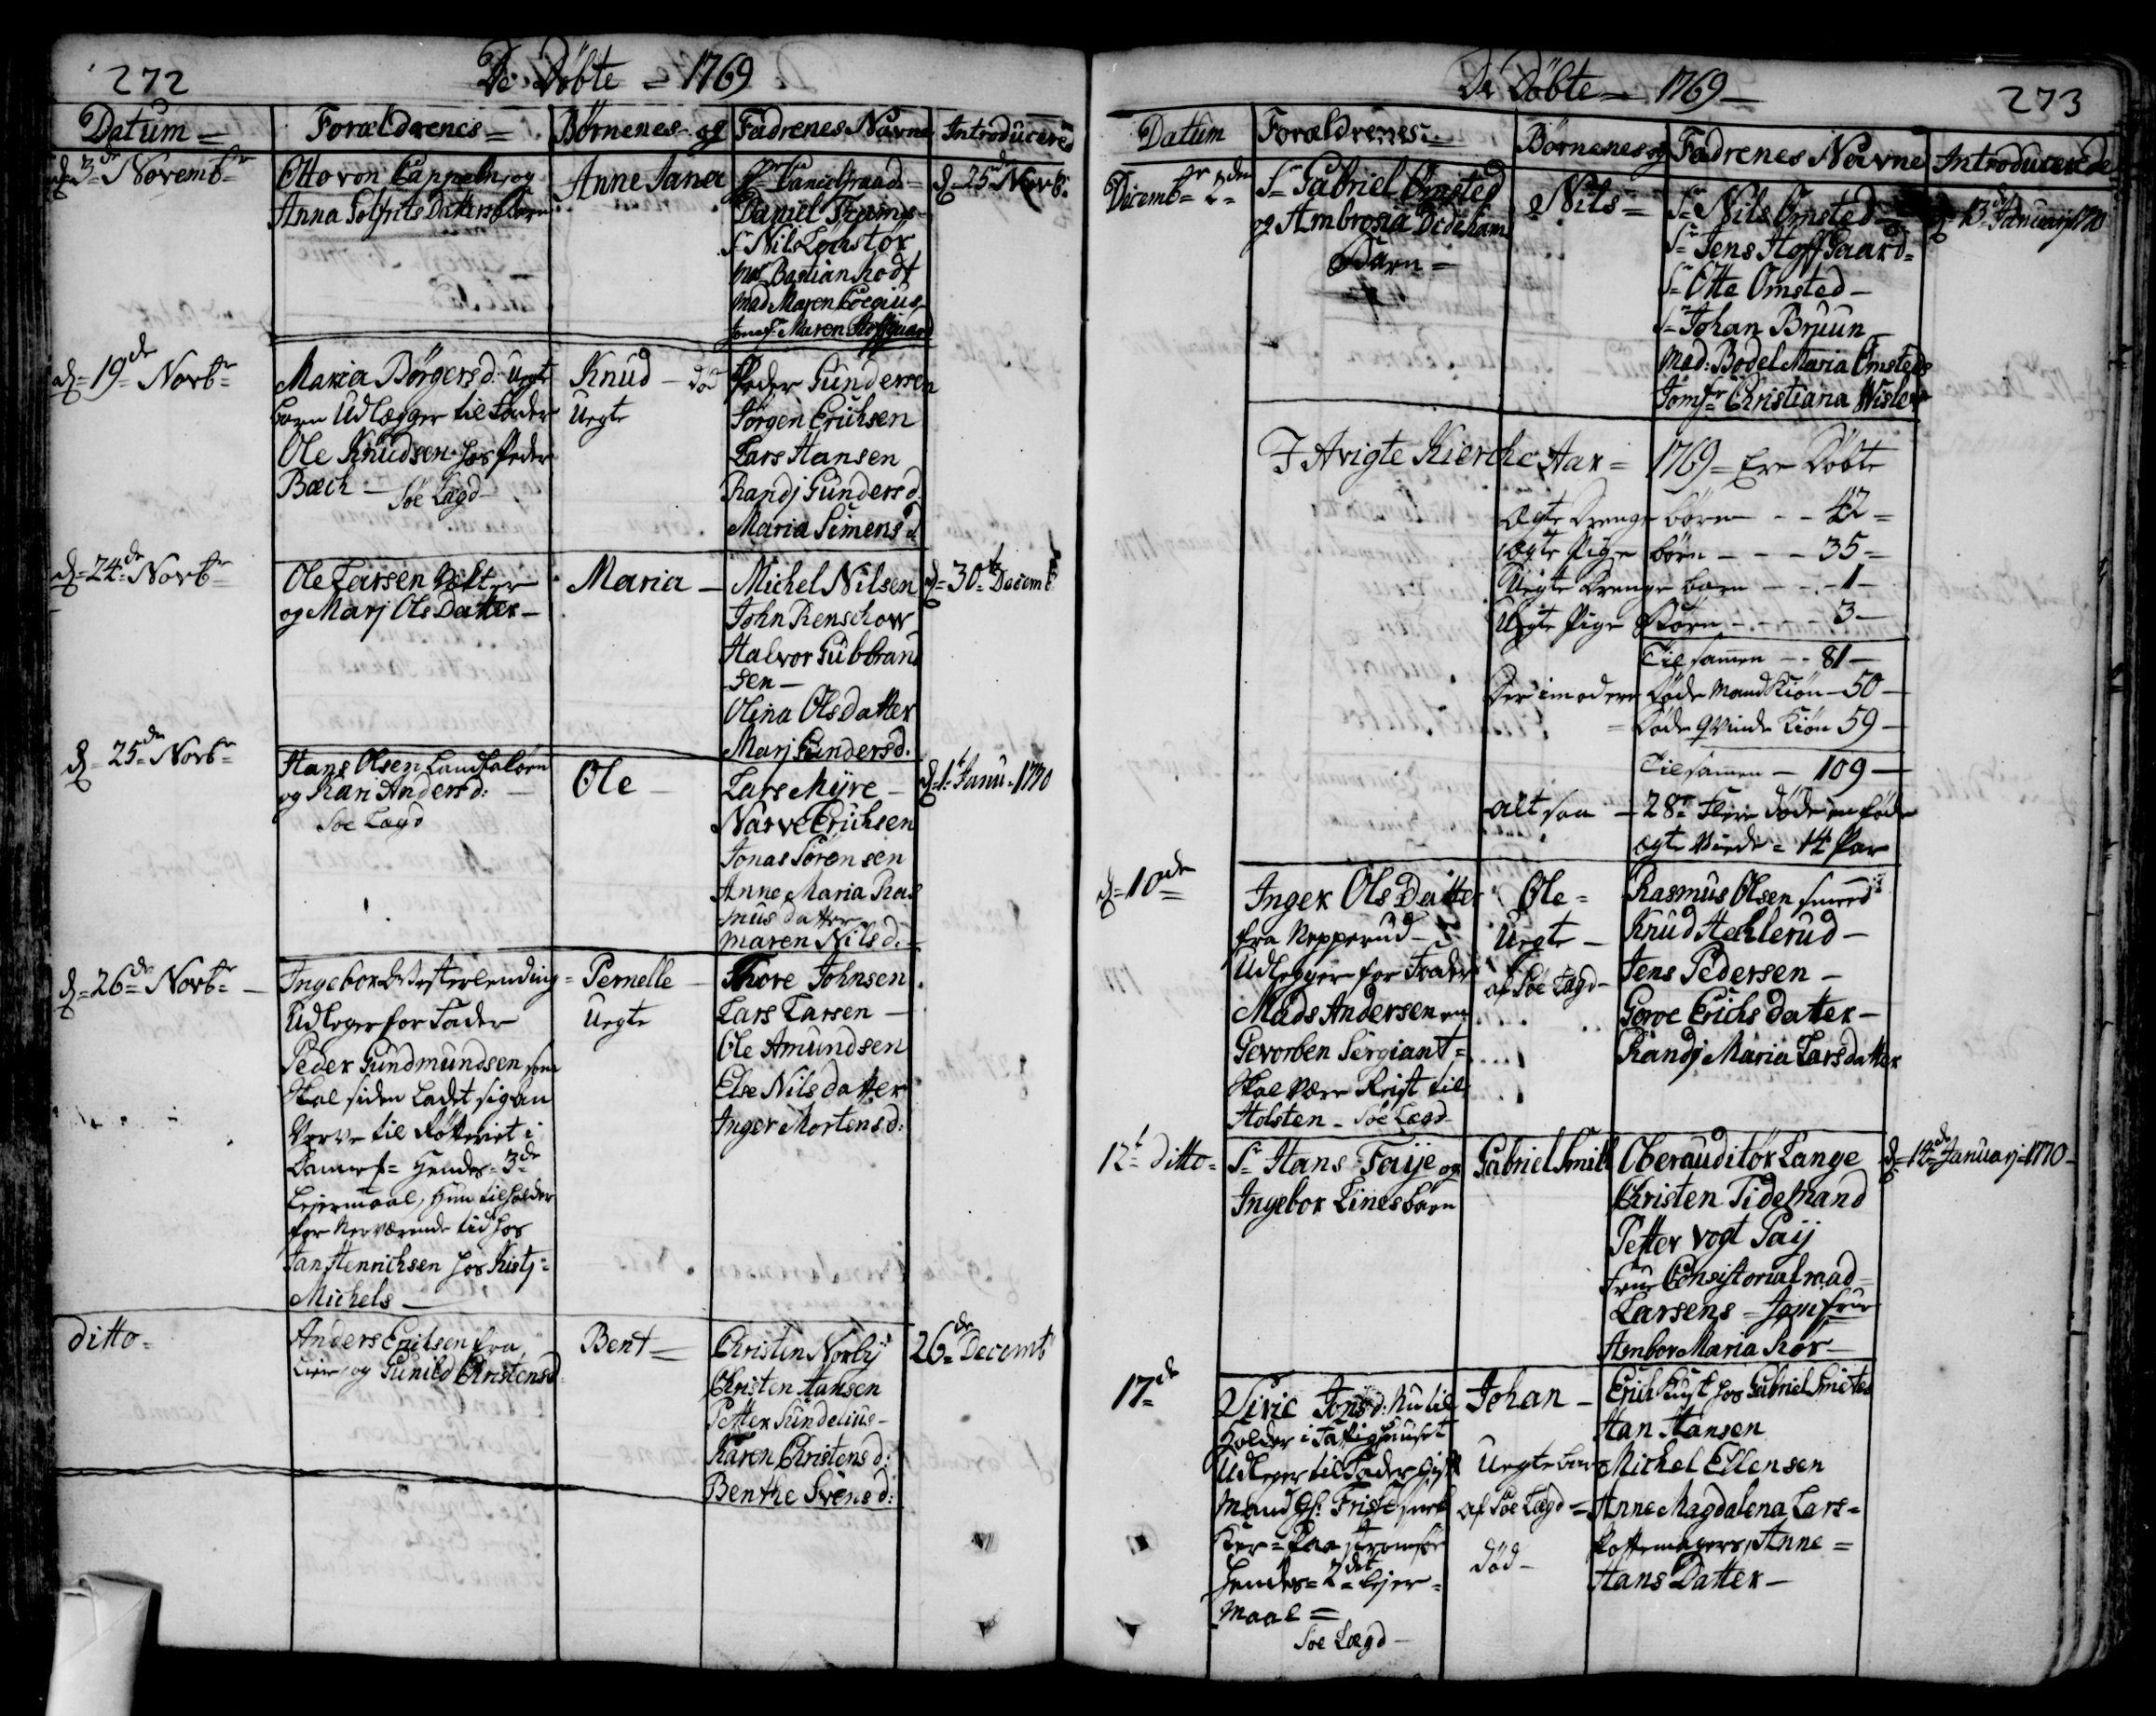 272
De Döbte = 1769
Datum =
Forældrenes =
Börnenes og
Fadrenes Navne
Introducered
d 3de Novembr
Otto von Cappeln, og
Anna Datters barn
Anne Jana
Daniel Tramp
Sr Nils
Bastian
Mad Maren
Jomfr Maren Hoffgaard
d 25de Novb:
d = 19de Novbr =
Maria Börgersd: Uegte
barn Udlægger til Fader
Ole Knudsen hos Peder
Bæch —
Söe Lægd
Knud — död
Uegte
Peder Gundersen
Jörgen Erichsen
Lars Hansen
Randj Gundersd
Maria Simensd
d = 24de Novbr =
Ole Larsen
og Marj Ols Datter —
Maria —
Michel Nilsen
John Renschow
Halvor Gubbrand
sen —
Olina Olsdatter
Marj Gundersd.
d = 30t Decemb
d = 25de Novbr
Hans Olsen
og Kari Andersd: —
Söe Lægd
Ole —
Lars Myre —
Narve Erichsen
Jonas Sörensen
Anne Maria Ras
musdatter
Maren Nilsd. —
d 1t Janu. 1770
d = 26de Novbr —
Ingebor Westerlending =
Udleger for Fader
Peder Gundmundsen som
skal siden Ladet sig an
Verve til i
Hendes 3de
Leiermaal, hun tilholder
for Nerværende tid hos
Jan Henrichsen hos
Michels —
Pernelle —
Uegte
Thore Johnsen
Lars Larsen —
Ole Amundsen
Else Nilsdatter
Inger Mortensd:
ditto =
Anders fra
Lier, og Gunild Christensd
Bent —
Christen Norby
Christen Hansen
Petter Sundelius —
Karen Christensd:
Benthe Svensd:
26de Decemb
De Döbte = 1769 —
273
Datum
Forældrenes =
Börnenes og
Fadrenes Navne
Introducerede
Decembr 2den
Sr Gabriel Omsted
og Ambrosia Dedekam
Barn =
Nils =
Sr Nils Omsted —
Sr Jens Hoffgaard =
Sr Otte Omsted —
Sr Johan Bruun
Mad: Bodel Maria Omsteds
Jomfr Christiana Wisler
d = 13de Januarj 1770
I Avigte Kierche Aar = 1769 = Ere Döbte
Ægte Drenge börn — — 42 =
Ægte Pige börn — — — 35 =
Uegte Drenge barn — — — 1 —
Uegte Pige Börn — — — 3 —
Tilsamen — — 81 —
Der imod ere Döde Mand Kiön — 50 —
= Döde Qvinde Kiön 59 —
Tilsamen — 109 —
Alt saa — 28 Flere döde en föde
Ægte Viede = 14 Par
d = 10de
Inger Ols Datter
fra Nepperud —
Udlegger for Fader
Mads Andersen en
Gevorben Sergiant =
skal være Reist til
Holsten — Söe Lægd
Ole =
Uegte —
af Söe Lægd —
Rasmus Olsen smed
Knud Hehlerud —
Jens Pedersen —
Gorve Erichsdatter —
Randj Maria Larsdatter
12t ditto =
Sr Hans Taije og
Ingebor Lines barn
Gabriel Smitt
Oberauditör Lange
Christen Tidemand
Petter Vogt Paij
Frue Consistorialraad
Larsens = Jomfrue
Anbor Maria Rör —
d = 14de Januarj = 1770 —
17de
Sirie Jonsd: Nu til
holder i
Udleger til Fader gift
Mand
Paa Strömsöe
Hendes = 2det Lejer =
maal =
Söe Lægd —
Johan —
Uegte barn
af Söe Lægd =
död —
Erich hos Gabriel Smeted
Han Hansen
Michel Ellensen
Anne Magdalena Lars =
Pottemagers, Anne =
Hans Datter —